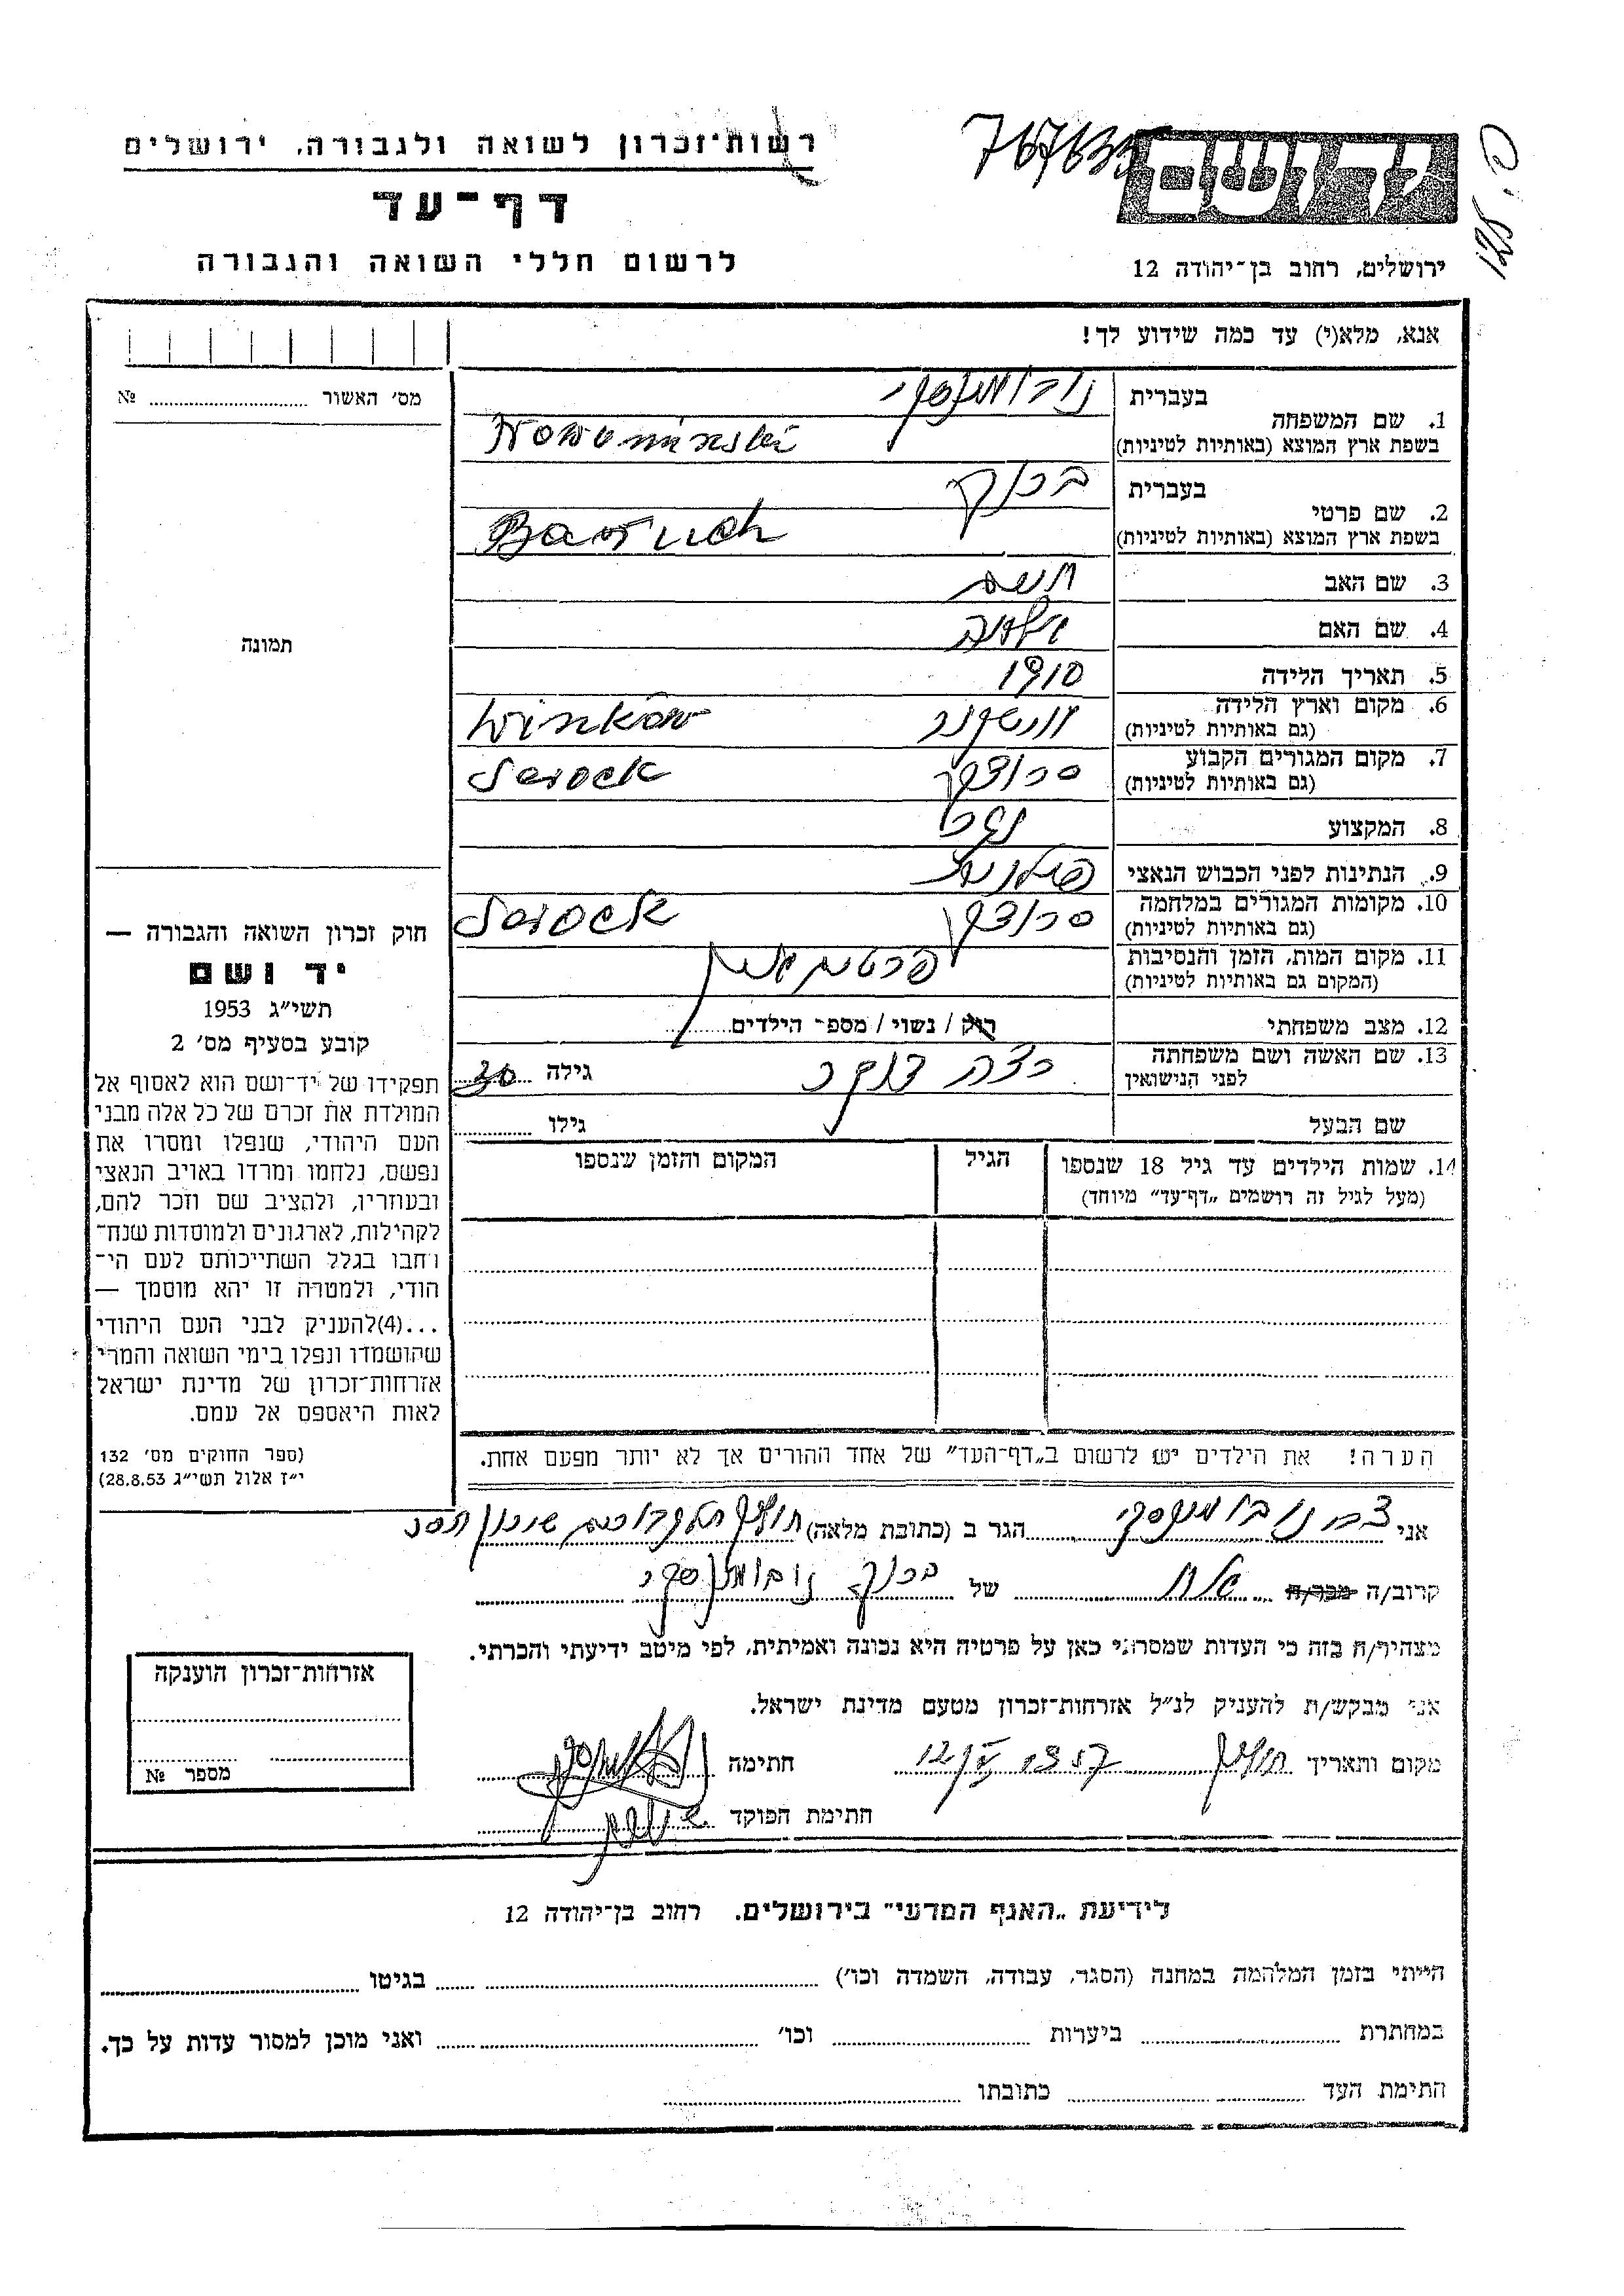 רשות־זכרון לשואה ולגבורה, ירושלים
דף־עד
לרשום חללי השואה והגבורה
יד ושם
ירושלים, רחוב בן־יהודה 12
אנא, מלא(י) עד כמה שידוע לך!
מס׳ האשור № 
תמונה
1. שם המשפחה
בעברית נובומינסקי
בשפת ארץ המוצא (באותיות לטיניות) Nowominski
2. שם פרטי
בעברית ברוך
בשפת ארץ המוצא (באותיות לטיניות) Baruch
3. שם האב
4. שם האם
5. תאריך הלידה 1910
6. מקום וארץ הלידה
(גם באותיות לטיניות)
7. מקום המגורים הקבוע סרוצק Serock
(גם באותיות לטיניות)
8. המקצוע נגר
9. הנתינות לפני הכבוש הנאצי פולנית
10. מקומות המגורים במלחמה סרוצק Serock
(גם באותיות לטיניות)
11. מקום המות, הזמן והנסיבות
(המקום גם באותיות לטיניות)
12. מצב משפחתי רוק / נשוי / מספר הילדים
13. שם האשה ושם משפחתה גילה 30
לפני הנישואין
שם הבעל גילו
14. שמות הילדים עד גיל 18 שנספו הגיל המקום והזמן שנספו
(מעל לגיל זה רושמים „דף־עד” מיוחד)
הערה! את הילדים יש לרשום ב„דף־העד” של אחד ההורים אך לא יותר מפעם אחת.
חוק זכרון השואה והגבורה —
יד ושם
תשי״ג 1953
קובע בסעיף מס׳ 2
תפקידו של יד־ושם הוא לאסוף אל
המולדת את זכרם של כל אלה מבני
העם היהודי, שנפלו ומסרו את
נפשם, נלחמו ומרדו באויב הנאצי
ובעוזריו, ולהציב שם וזכר להם,
לקהילות, לארגונים ולמוסדות שנח־
רחבו בגלל השתייכותם לעם הי־
הודי, ולמטרה זו יהא מוסמך —
...(4)להעניק לבני העם היהודי
שהושמדו ונפלו בימי השואה והמרי
אזרחות־זכרון של מדינת ישראל
לאות היאספם אל עמם.
(ספר החוקים מס׳ 132
י״ז אלול תשי״ג 28.8.53)
אני צבי נובומינסקי הגר ב (כתובת מלאה) חולון
קרוב/ה מכר/ה אח של ברוך נובומינסקי
מצהיר/ה בזה כי העדות שמסרתי כאן על פרטיה היא נכונה ואמיתית, לפי מיטב ידיעתי והכרתי.
אני מבקש/ת להעניק לנ״ל אזרחות־זכרון מטעם מדינת ישראל.
מקום ותאריך חולון 1957 חתימה
חתימת הפוקד
אזרחות־זכרון הוענקה
מספר №
לידיעת „האגף המדעי” בירושלים. רחוב בן־יהודה 12
הייתי בזמן המלחמה במחנה (הסגר, עבודה, השמדה וכו׳) בגיטו
במחתרת ביערות וכו׳ ואני מוכן למסור עדות על כך.
חתימת העד כתובתו